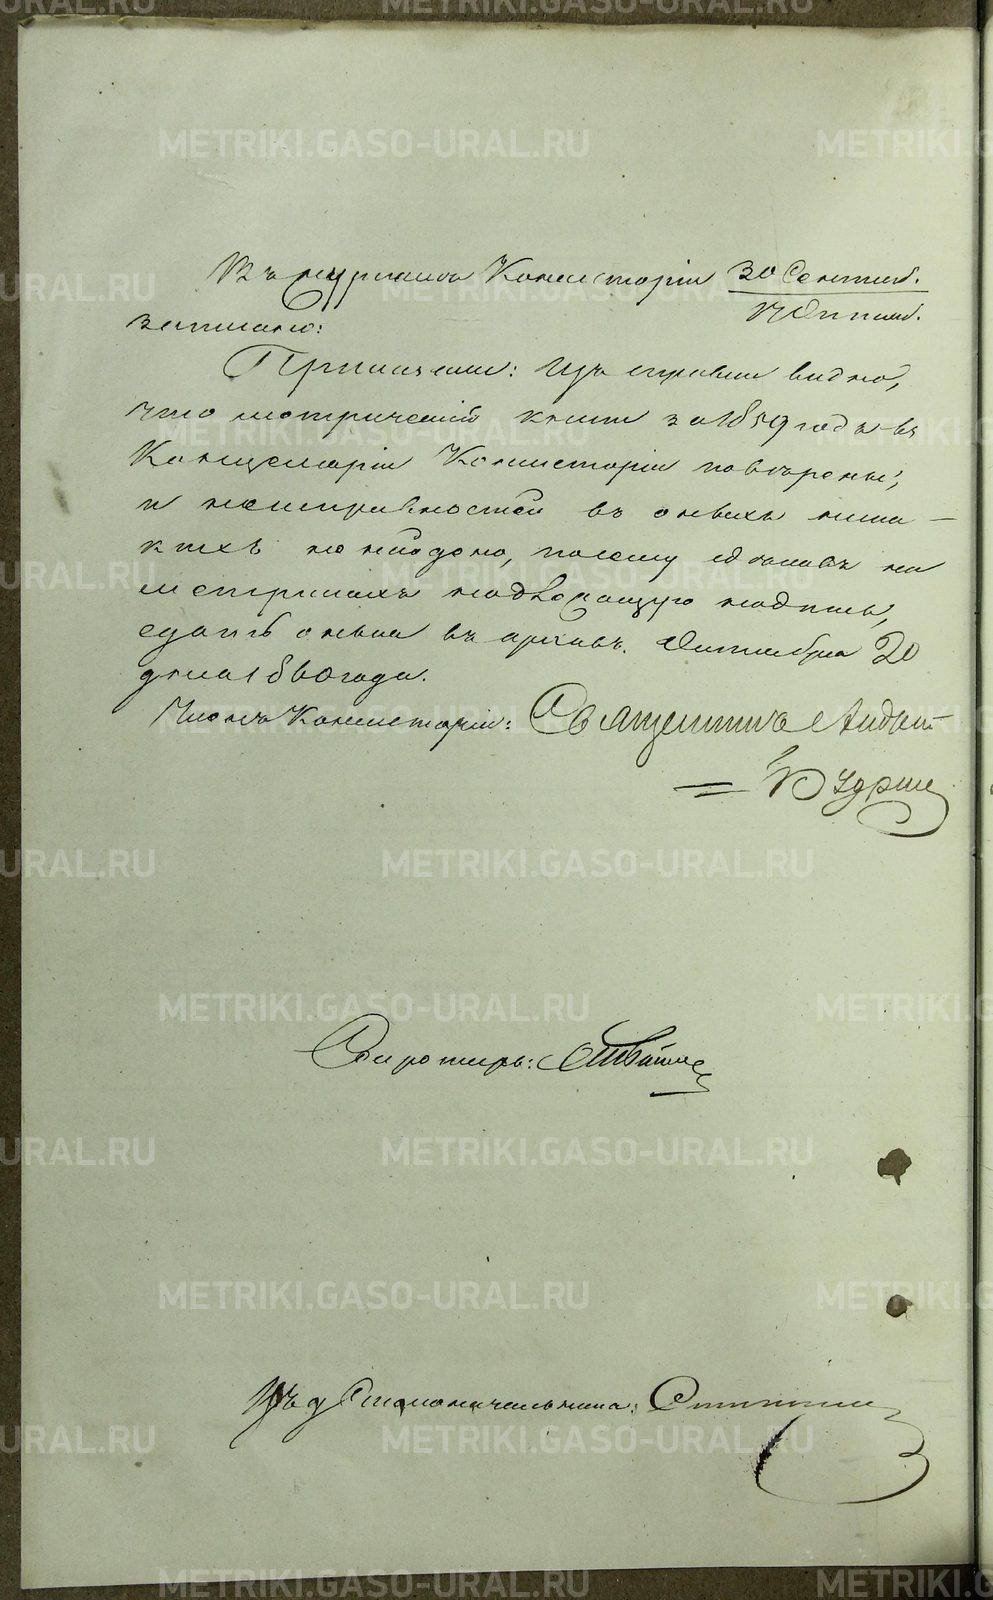 Въ журналѣ Консисторіи 30 Сентяб.
Октяб.
записано:
Приказали: Изъ справки видно,
что метрическія книги за 1859 годъ въ
Канцеляріи Консисторіи повѣрены,
и неисправностей въ оныхъ ника-
кихъ не найдено, посему сдѣлавъ на
метрикахъ надлежащую надпись,
сдать оныя въ архивъ. Октября 20
дня 1860 года.
Членъ Консисторіи: Священникъ Андрей
Секретарь:
Столоначальника:
METRIKI.GASO-URAL.RU